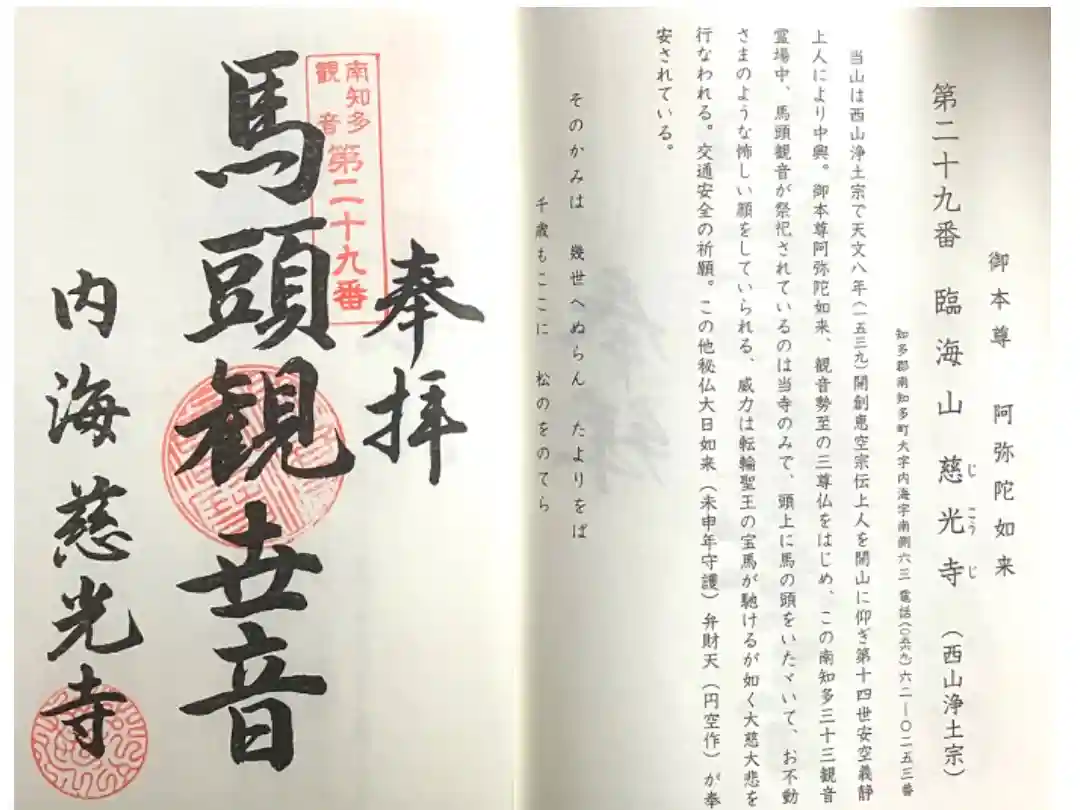 御本尊 阿弥陀如来
第二十九番 臨海山 慈光寺 (西山浄土宗)
じ こう じ
知多郡南知多町大字内海字南側六三 電話(〇五六九)六二ー〇二五三番
当山は西山浄土宗で天文八年(一五三九)開創恵空宗伝上人を開山に仰ぎ第十四世安空義静
上人により中興。御本尊阿弥陀如来、観音勢至の三尊仏をはじめ、この南知多三十三観音
霊場中、馬頭観音が祭祀されているのは当寺のみで、頭上に馬の頭をいたゞいて、お不動
さまのような怖しい顔をしていられる、威力は転輪聖王の宝馬が馳けるが如く大慈大悲を
行なわれる。交通安全の祈願。この他秘仏大日如来(未申年守護)弁財天(円空作)が奉
安されている。
そのかみは 幾世へぬらん たよりをば
千歳もここに 松のをのてら
奉拝
南知多
観音
第二十九番
馬頭観世音
内海 慈光寺